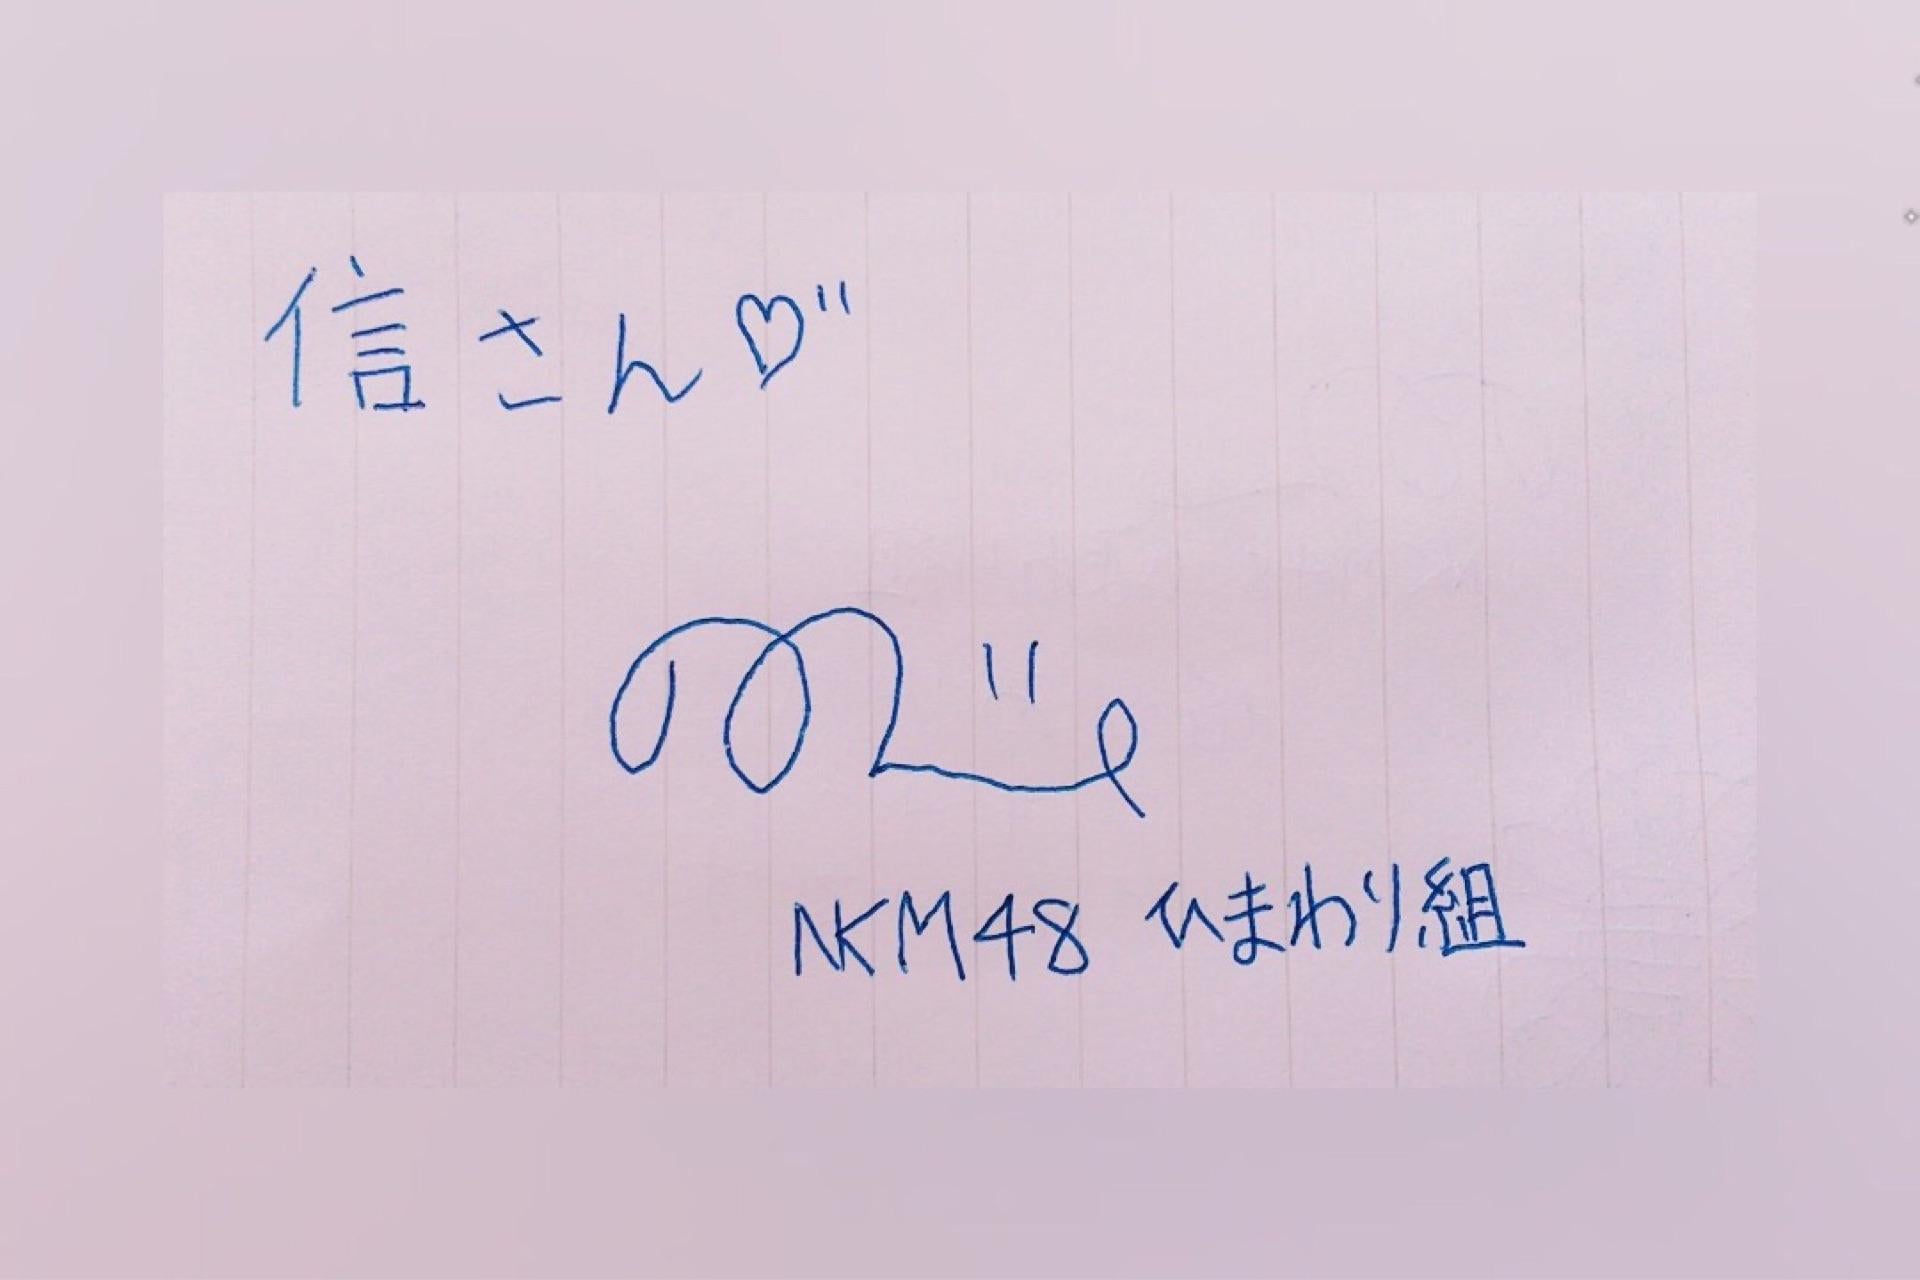 信さん♡"
NKM48 ひまわり組